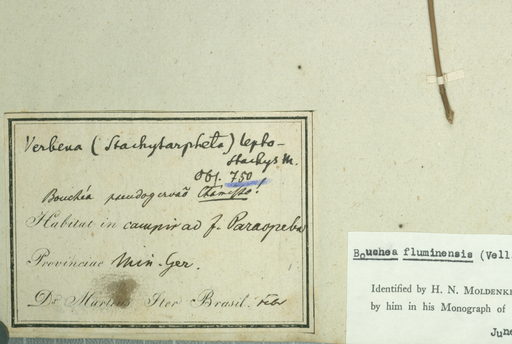 Verbena (Stachytarpheta) lepto-
stachys M.
Obs. 750
Bouchéa pseudogervaõ Chamisso!
Habitat in campis ad f. Paraopeba
Provinciae Min. Ger.
Dr. Martius Iter Brasil.
Bouchea fluminensis (Vell.
Identified by H. N. MOLDENKE
by him in his Monograph of
June